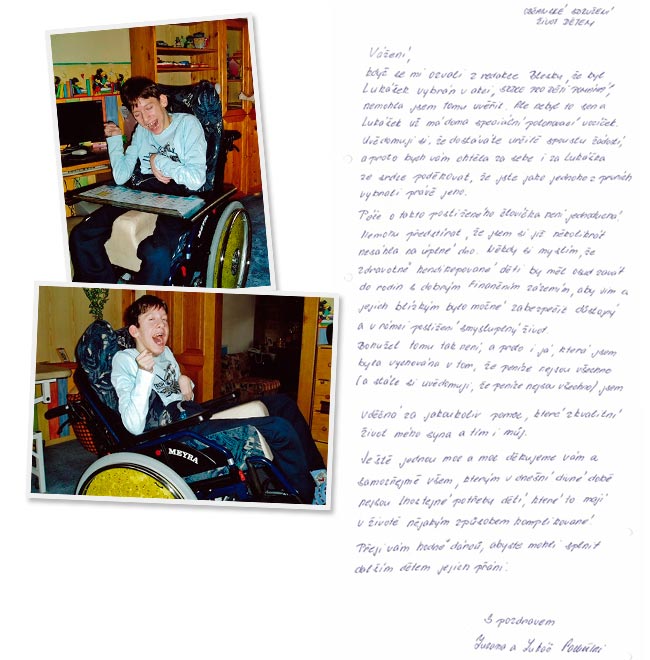 OBČANSKÉ SDRUŽENÍ
ŽIVOT DĚTEM
Vážení,
když se mi ozvali z redakce Blesku, že byl
Lukášek vybrán v akci, srdce pro děti
nemohla jsem tomu uvěřit. Ale nebyl to sen a
Lukášek už má doma speciální polohovací vozíček.
Uvědomuji si, že dostáváte určitě spoustu žádostí,
a proto bych vám chtěla za sebe i za Lukáška
ze srdce poděkovat, že jste jako jednoho z prvních
vybrali právě jeho.
Péče o takto postiženého človíčka není jednoduchá!
Nemohu předstírat, že jsem si již několikrát
nesáhla na úplné dno. Někdy si myslím, že
zdravotně handikepované děti by měl osud dávat
do rodin s dobrým finančním zázemím, aby jim a
jejich blízkým bylo možné zabezpečit důstojný
a v rámci postižení smysluplný život.
Bohužel tomu tak není, a proto i já, která jsem
byla vychována v tom, že peníze nejsou všechno
(a stále si uvědomuji, že peníze nejsou všechno) jsem
vděčná za jakoukoliv pomoc, která zkvalitní
život mého syna a tím i můj.
Ještě jednou moc a moc děkujeme vám a
samozřejmě všem, kterým v dnešní divné době
nejsou lhostejné potřeby dětí, které to mají
v životě nějakým způsobem komplikované!
Přeji vám hodně dárců, abyste mohli splnit
dalším dětem jejich přání.
S pozdravem
Zuzana a Lukáš
MEYRA